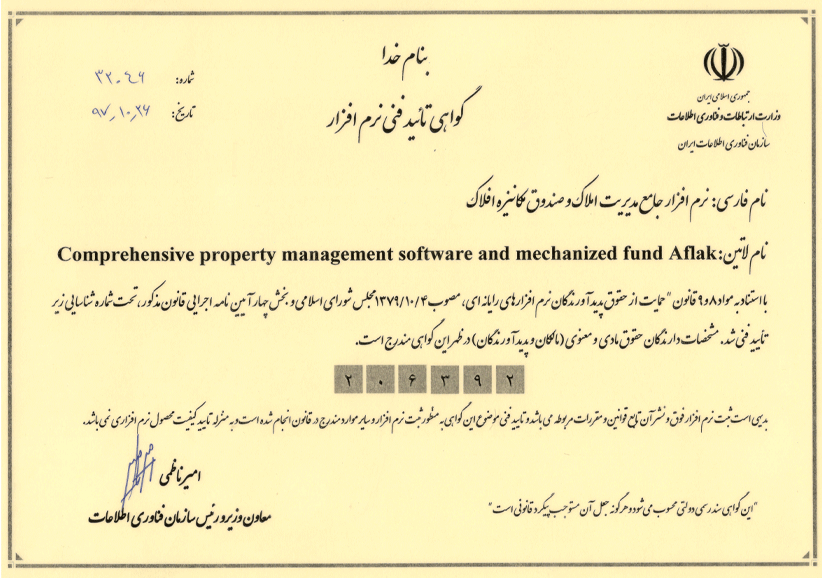 بنام خدا
گواهی تأئید فنی نرم افزار
جمهوری اسلامی ایران
وزارت ارتباطات و فناوری اطلاعات
سازمان فناوری اطلاعات ایران
شماره: ۳۲۰۴۶
تاریخ: ۹۷٫۱۰٫۲۶
نام فارسی: نرم افزار جامع مدیریت املاک و صندوق مکانیزه افلاک
نام لاتین: Comprehensive property management software and mechanized fund Aflak
با استناد به مواد ۸ و ۹ قانون "حمایت از حقوق پدیدآورندگان نرم افزارهای رایانه ای، مصوب ۱۳۷۹/۱۰/۴ مجلس شورای اسلامی و بخش چهار آیین نامه اجرایی قانون مذکور، تحت شماره شناسایی زیر
تأیید فنی شد. مشخصات دارندگان حقوق مادی و معنوی (مالکان و پدیدآورندگان) در ظهر این گواهی مندرج است.
۲۰۶۳۹۲
بدیهی است ثبت نرم افزار فوق و نشر آن تابع قوانین و مقررات مربوطه می باشد و تایید فنی موضوع این گواهی به منظور ثبت نرم افزار و سایر موارد مندرج در قانون انجام شده است و به منزله تایید کیفیت محصول نرم افزاری نمی باشد.
امیر ناظمی
معاون وزیر و رئیس سازمان فناوری اطلاعات
"این گواهی سند رسمی دولتی محسوب می شود و هرگونه جعل آن مستوجب پیگرد قانونی است"